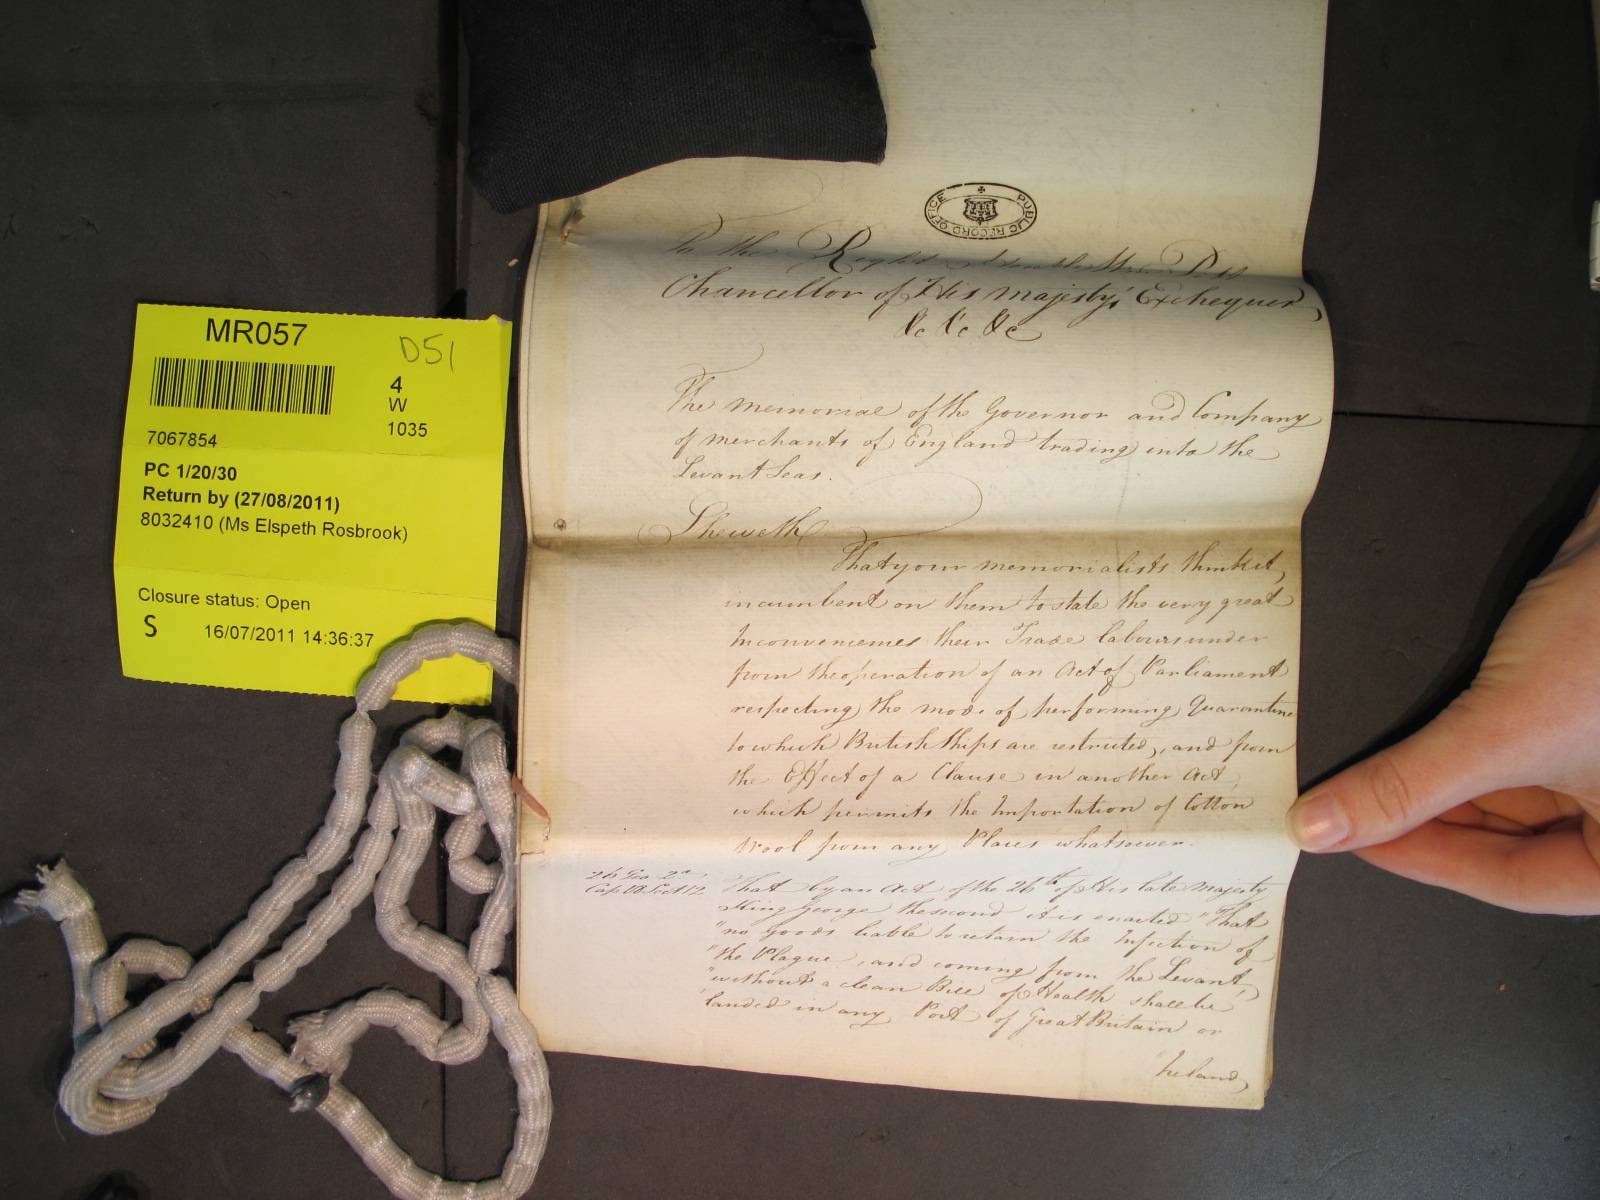 MR057
D51
4
W
1035
7067854
PC 1/20/30
Return by (27/08/2011)
8032410 (Ms Elspeth Rosbrook)
Closure status: Open
S 16/07/2011 14:36:37
PUBLIC RECORD OFFICE
To the Right Honorable Pitt
Chancellor of His Majesty's Exchequer,
&c &c &c
The Memorial of the Governor and Company
of Merchants of England trading into the
Levant Seas.
Sheweth
That your memorialists think it,
incumbent on them to state the very great
Inconveniences their Trade labours under
from the operation of an Act of Parliament
respecting the mode of performing Quarantine
to which British Ships are restricted, and from
the Effect of a Clause in another Act,
which permits the Importation of Cotton
Wool from any Places whatsoever.
26 Geo 2d
Cap. Sect 12
That by an Act of the 26th of His late Majesty
King George the second it is enacted "That
"no Goods liable to retain the Infection of
"the Plague, and coming from the Levant,
"without a clean Bill of Health shall be
"landed in any Port of Great Britain or
"Ireland,